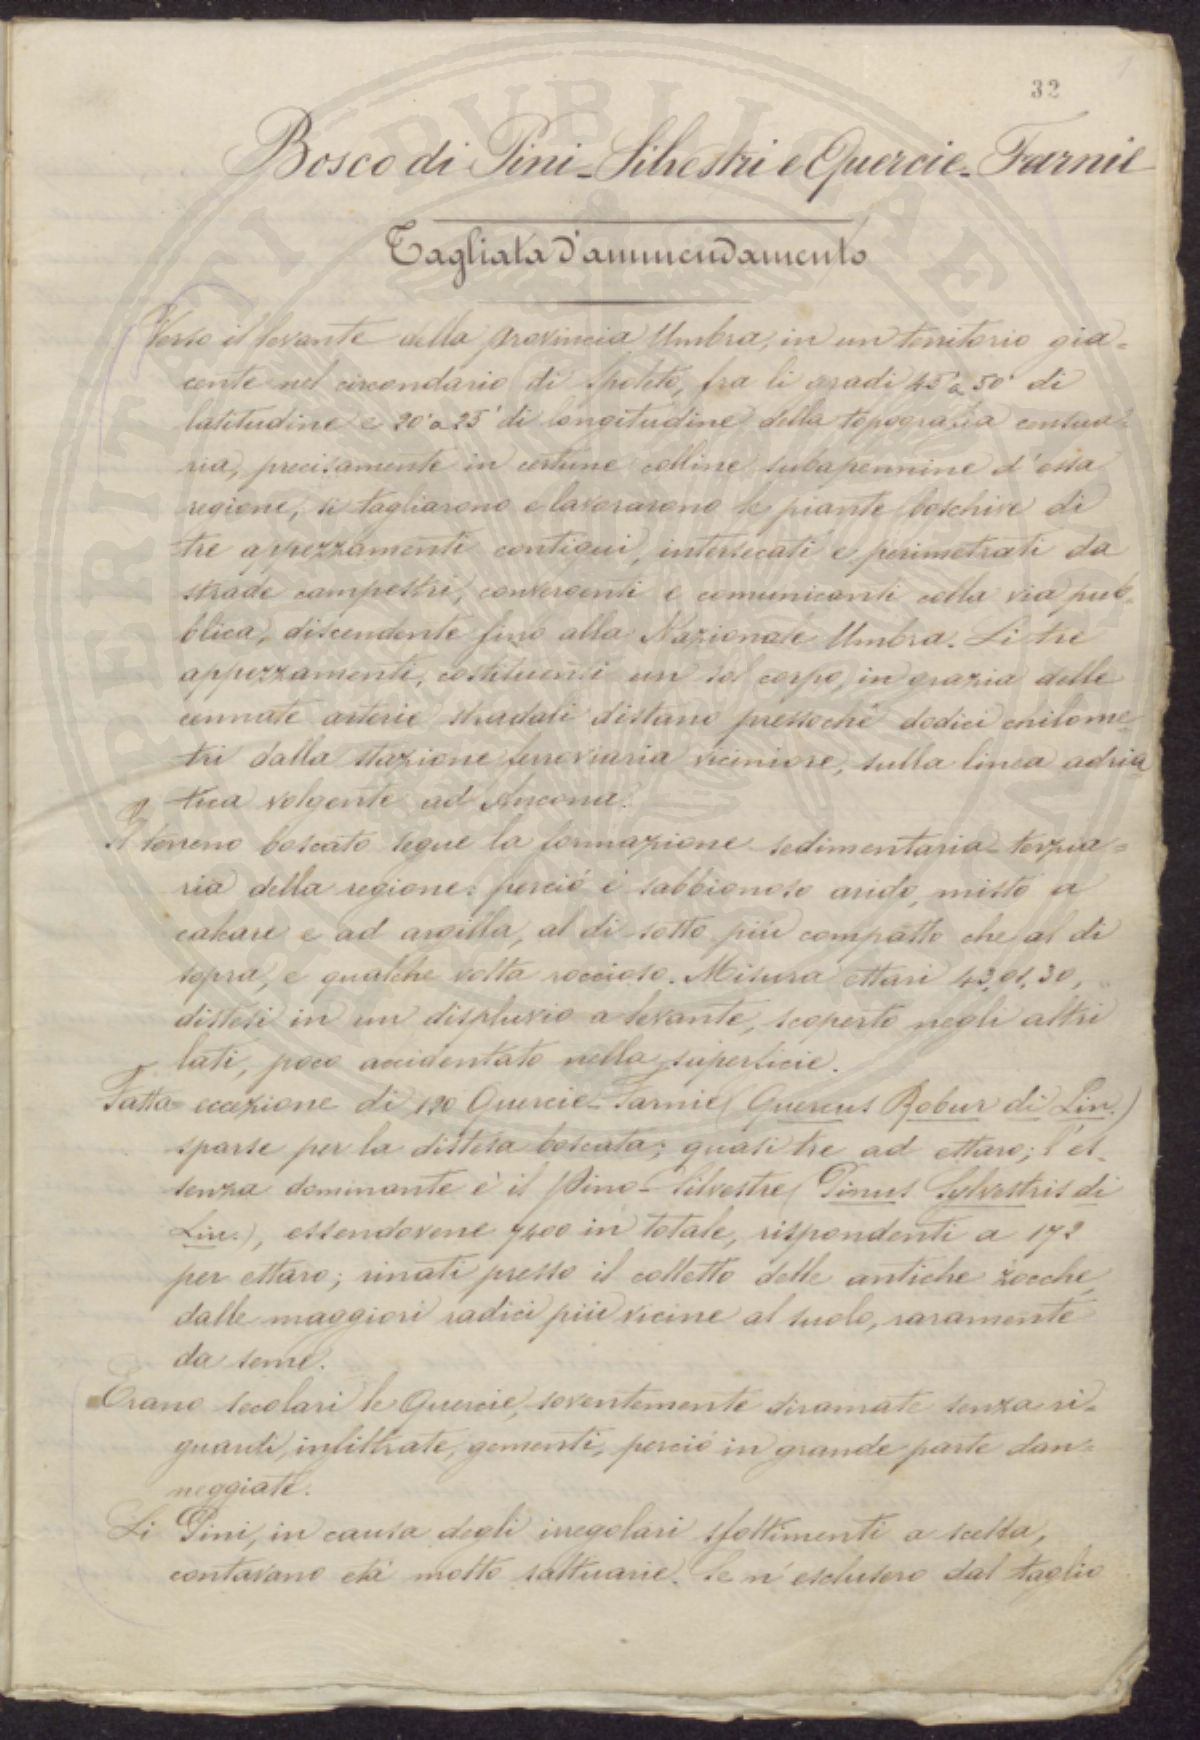 32
Bosco di Pini-Silvestri e Quercie-Farnie
Tagliata d'ammendamento
Verso il levante della provincia Umbra, in un territorio gia=
cente nel circondario di Spoleto, fra li gradi 45' a 50' di
latitudine e 20' a 25' di longitudine della topografia censua=
ria, precisamente in certune colline subapennine d'essa
regione, si tagliarono e lavorarono le piante boschive di
tre appezzamenti contigui, intersecati e perimetrati da
strade campestri, convergenti e comunicanti colla via pub-
blica, discendente fino alla Nazionale Umbra. Li tre
appezzamenti, costituenti un sol corpo, in grazia delle
cennate arterie stradali distano pressochè dodici chilome-
tri dalla stazione ferroviaria viciniore, sulla linea adria
tica volgente ad Ancona.
Il terreno boscato segue la formazione sedimentaria-terzia=
ria della regione: perciò è sabbionoso arido, misto a
calcare e ad argilla, al di sotto più compatto che al di
sopra, e qualche volta roccioso. Misura ettari 43,01,30,
distesi in un displuvio a levante, scoperto negli altri
lati, poco accidentato nella superficie.
Fatta eccezione di 120 Quercie-Farnie (Quercus Robur di Lin.)
sparse per la distesa boscata; quasi tre ad ettaro; l'es-
senza dominante è il Pino-Silvestre (Pinus Sylvestris di
Lin.), essendovene 7400 in totale, rispondenti a 172
per ettaro; rinati presso il colletto delle antiche zocche,
dalle maggiori radici più vicine al suolo, raramente
da seme.
Erano secolari le Quercie, soventemente diramate senza ri=
guardi, infiltrate, gementi, perciò in grande parte dan=
neggiate.
Li Pini, in causa degli irregolari sfoltimenti a scelta,
contavano età molto saltuarie. Se n'esclusero dal taglio
PERITATI PUBLICAE